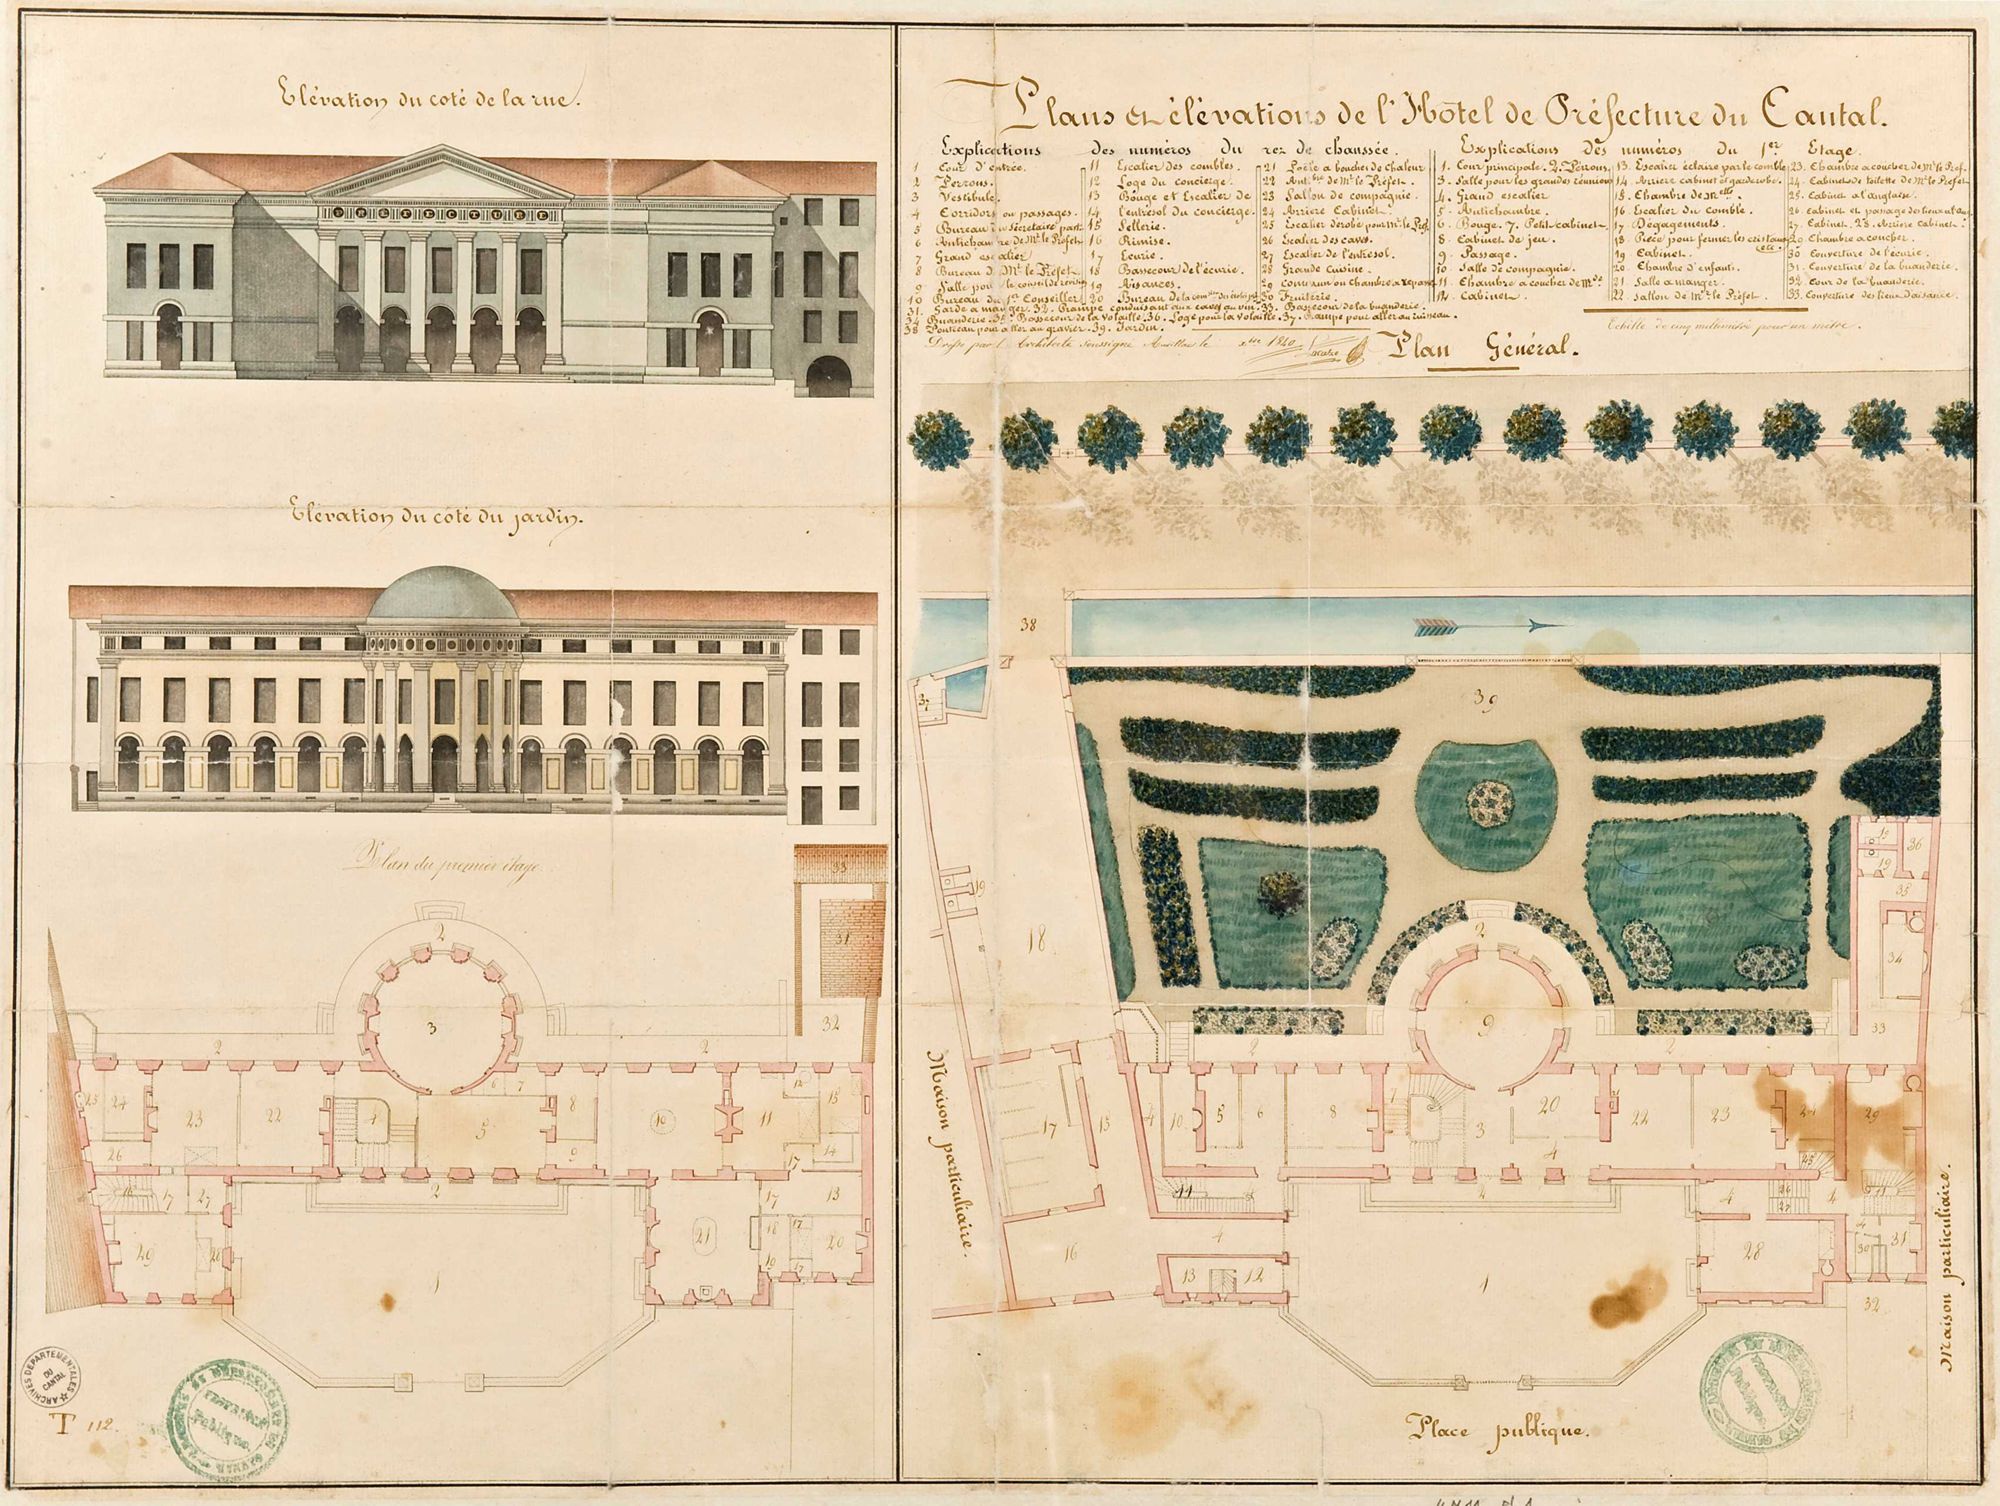 Elévation du coté de la rue.
PREFECTURE
Elévation du coté du jardin.
Plan du premier étage.
Plans et élévations de l'Hôtel de Préfecture du Cantal.
Explications des numéros du rez de chaussée.
1 Cour d'entrée.
2 Perrons.
3 Vestibule.
4 Corridors ou passages.
5 Bureau du Secrétaire part.
6 Antichambre de Mr. le Préfet.
7 Grand escalier
8 Bureau de Mr. le Préfet.
9 Salle pour le conseil de révision
10 Bureau du 1er Conseiller
11 Escalier des combles.
12 Loge du Concierge.
13 Bouge et Escalier de
14 l'entresol du concierge.
15 Sellerie.
16 Rémise.
17 Ecurie.
18 Bassecour de l'écurie.
19 Aisances.
20 Bureau de la
21 Poële a bouches de chaleur
22 Antbre de Mr. le Préfet.
23 Sallon de compagnie.
24 Arriere Cabinet.
25 Escalier dérobé pour Mr. le Préf.
26 Escalier des caves.
27 Escalier de l'entresol.
28 Grande Cuisine.
29 commun ou chambre a repasser
30 Fruiterie.
31. Garde a manger. 32. Rampe conduisant aux caves au vin. 33. Bassecour de la buanderie.
34 Buanderie. 35. Bassecour de la volaille. 36. Loge pour la volaille. 37. Rampe pour aller au ruisseau.
38 Ponteau pour aller au gravier. 39. Jardin.
Dressé par l'Architecte soussigné Aurillac le xbre 1840
Explications des numéros du 1er Etage.
1. Cour principale. 2. Perrons.
3. Salle pour les grandes réunions
4. Grand escalier
5. Antichambre.
6. Bouge. 7. Petit cabinet.
8. Cabinet de jeu.
9. Passage.
10. Salle de compagnie.
11. Chambre a coucher de Mde
12. Cabinet.
13. Escalier éclairé par le comble
14. Arriere cabinet et garderobe.
15. Chambre de Melle
16. Escalier du Comble.
17. Dégagements.
18. Pièce pour fermer les cristaux etc.
19. Cabinet.
20. Chambre d'enfants.
21. Salle a manger.
22. Sallon de Mr. le Préfet.
23. Chambre a coucher de Mr. le Préf.
24. Cabinet de toilette de Mr. le Préfet
25. Cabinet a l'anglaise.
26. Cabinet et passage des lieux
27. Cabinet. 28. Arriere cabinet.
29. Chambre a coucher.
30. Couverture de l'écurie.
31. Couverture de la buanderie.
32. Cour de la Buanderie.
33. Couverture des lieux d'aisance.
Echelle de cinq millimètres pour un mètre.
Plan Général.
38
37
39
19
18
19
36
19
35
2
34
9
33
2
2
17
15
4
10
5
6
8
7
3
20
22
23
24
29
4
25
11
4
2
4
26
27
4
11
16
13
12
1
28
30
31
32
Maison particuliaire.
Maison particuliaire.
Place publique.
33
31
32
2
3
2
2
25
24
23
22
4
5
6
7
8
9
10
11
12
15
14
17
26
16
17
27
2
29
28
1
21
17
13
18
17
20
19
17
ARCHIVES DEPARTEMENTALES DU CANTAL
T 112.